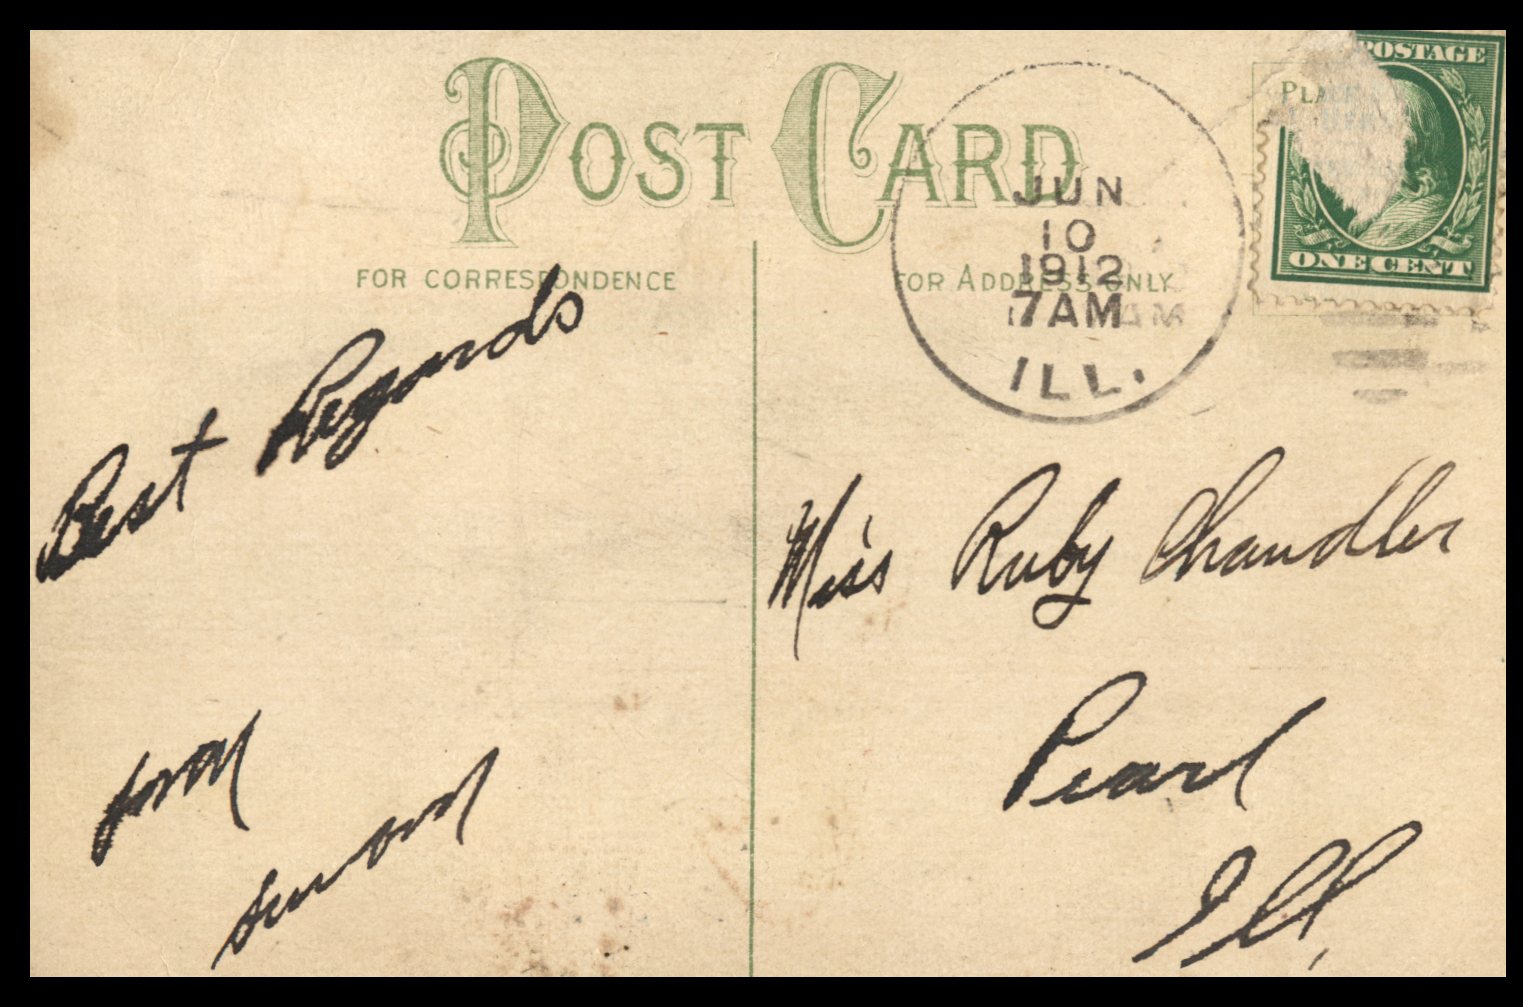 POST CARD
FOR CORRESPONDENCE
FOR ADDRESS ONLY
JUN
10
1912
7AM
ILL.
PLA
POSTAGE
ONE CENT
Best Regards
from
Miss Ruby Chandler
Pearl
Ill.